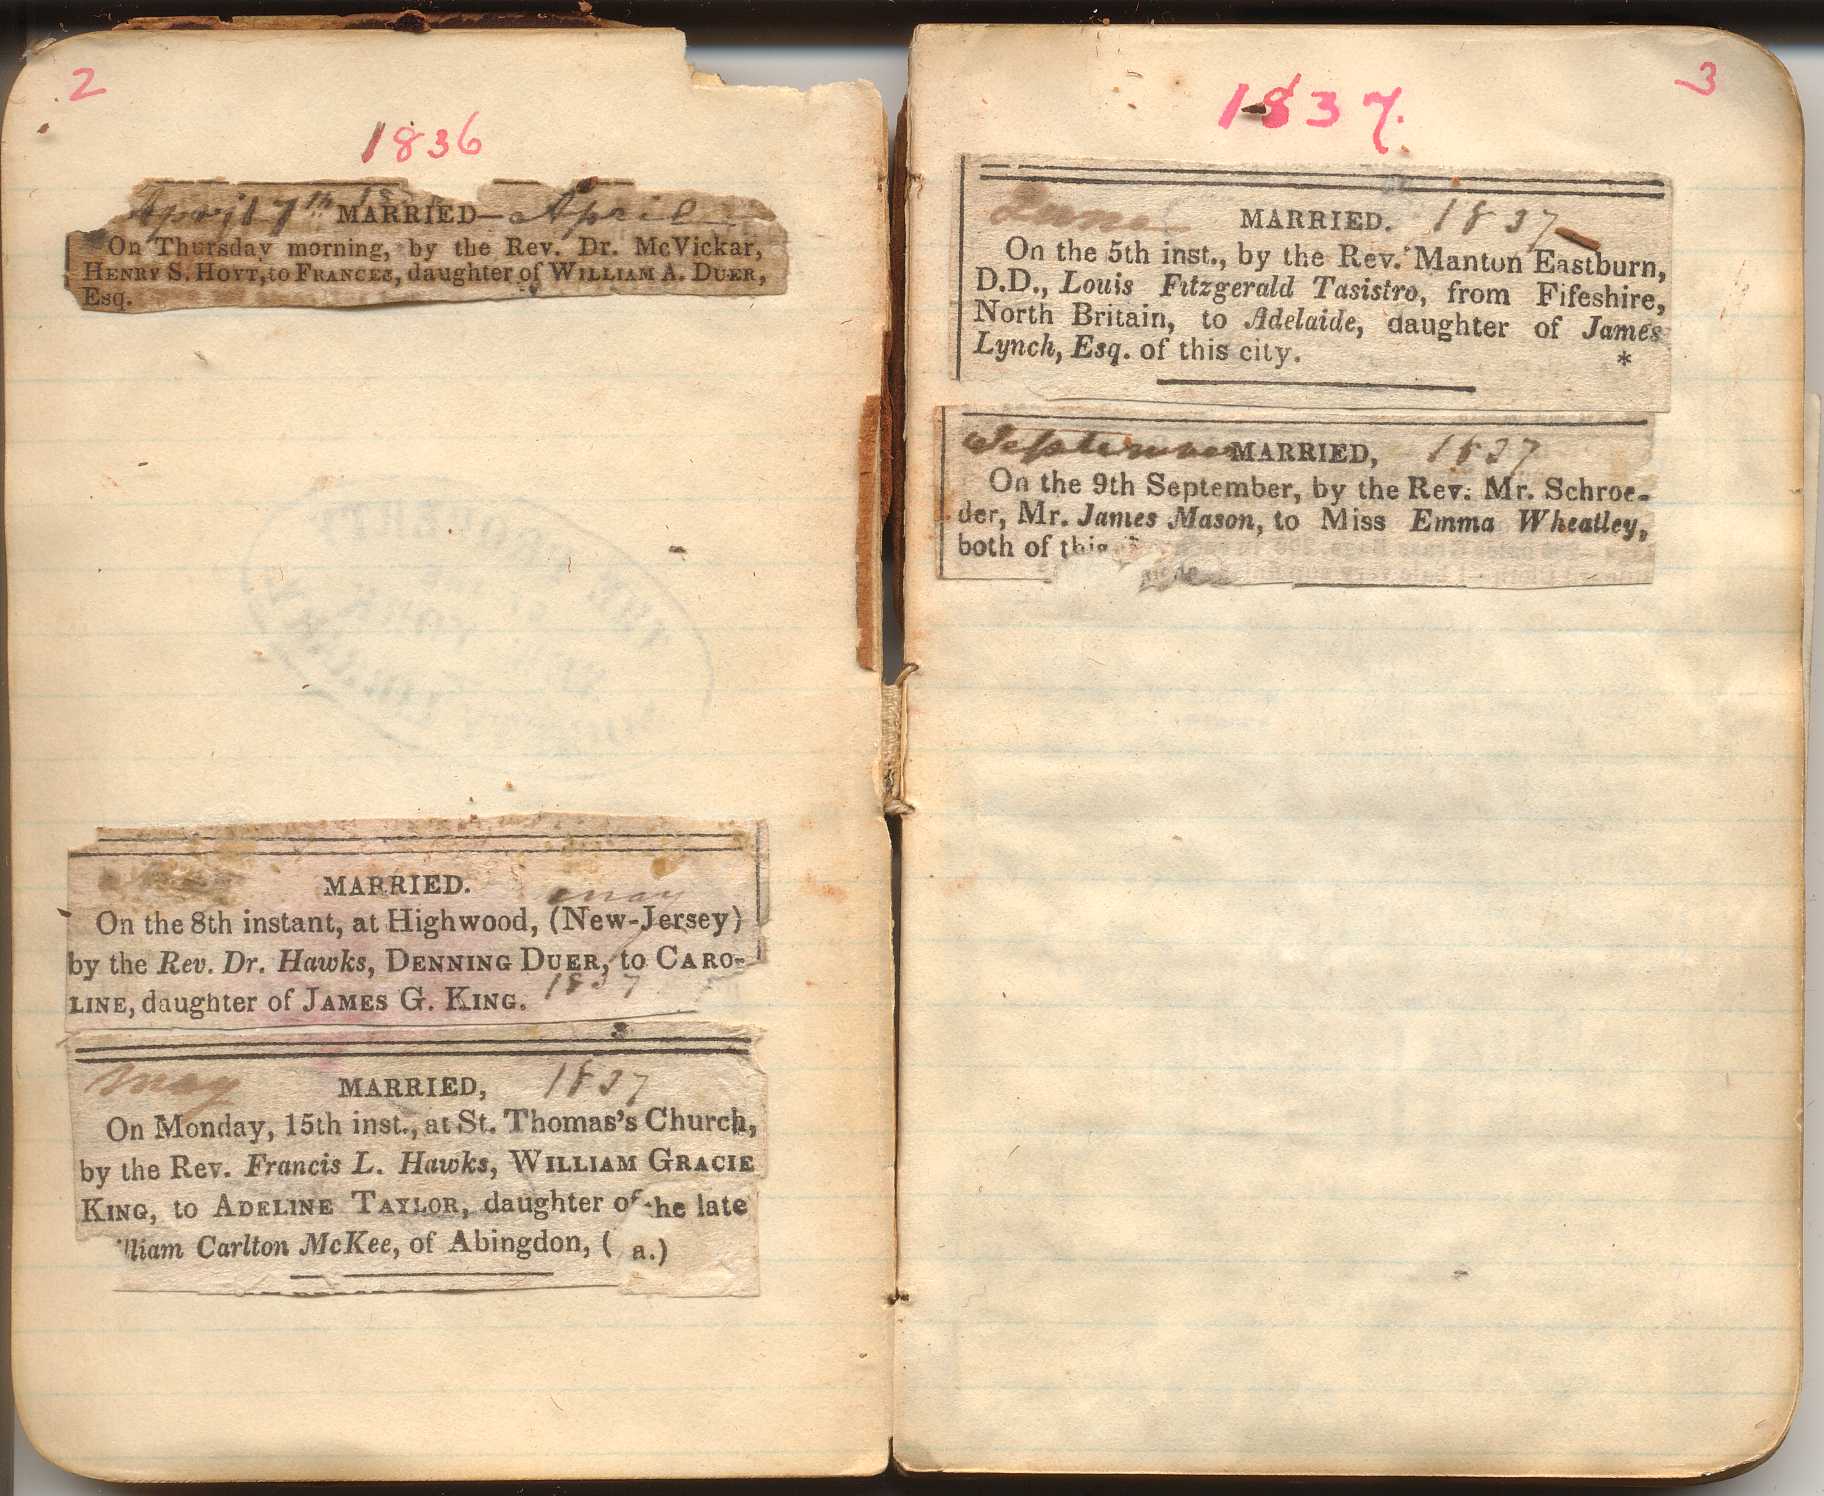 2
1836
April 7th MARRIED— April
On Thursday morning, by the Rev. Dr. McVickar,
HENRY S. HOYT, to FRANCES, daughter of WILLIAM A. DUER,
Esq.
MARRIED.
may
On the 8th instant, at Highwood, (New-Jersey)
by the Rev. Dr. Hawks, DENNING DUER, to CARO-
LINE, daughter of JAMES G. KING. 1837
may MARRIED, 1837
On Monday, 15th inst., at St. Thomas's Church,
by the Rev. Francis L. Hawks, WILLIAM GRACIE
KING, to ADELINE TAYLOR, daughter of he late
lliam Carlton McKee, of Abingdon, ( a.)
3
1837.
June MARRIED. 1837
On the 5th inst., by the Rev. Manton Eastburn,
D.D., Louis Fitzgerald Tasistro, from Fifeshire,
North Britain, to Adelaide, daughter of James
Lynch, Esq. of this city. *
September MARRIED, 1837
On the 9th September, by the Rev. Mr. Schroe-
der, Mr. James Mason, to Miss Emma Wheatley,
both of this